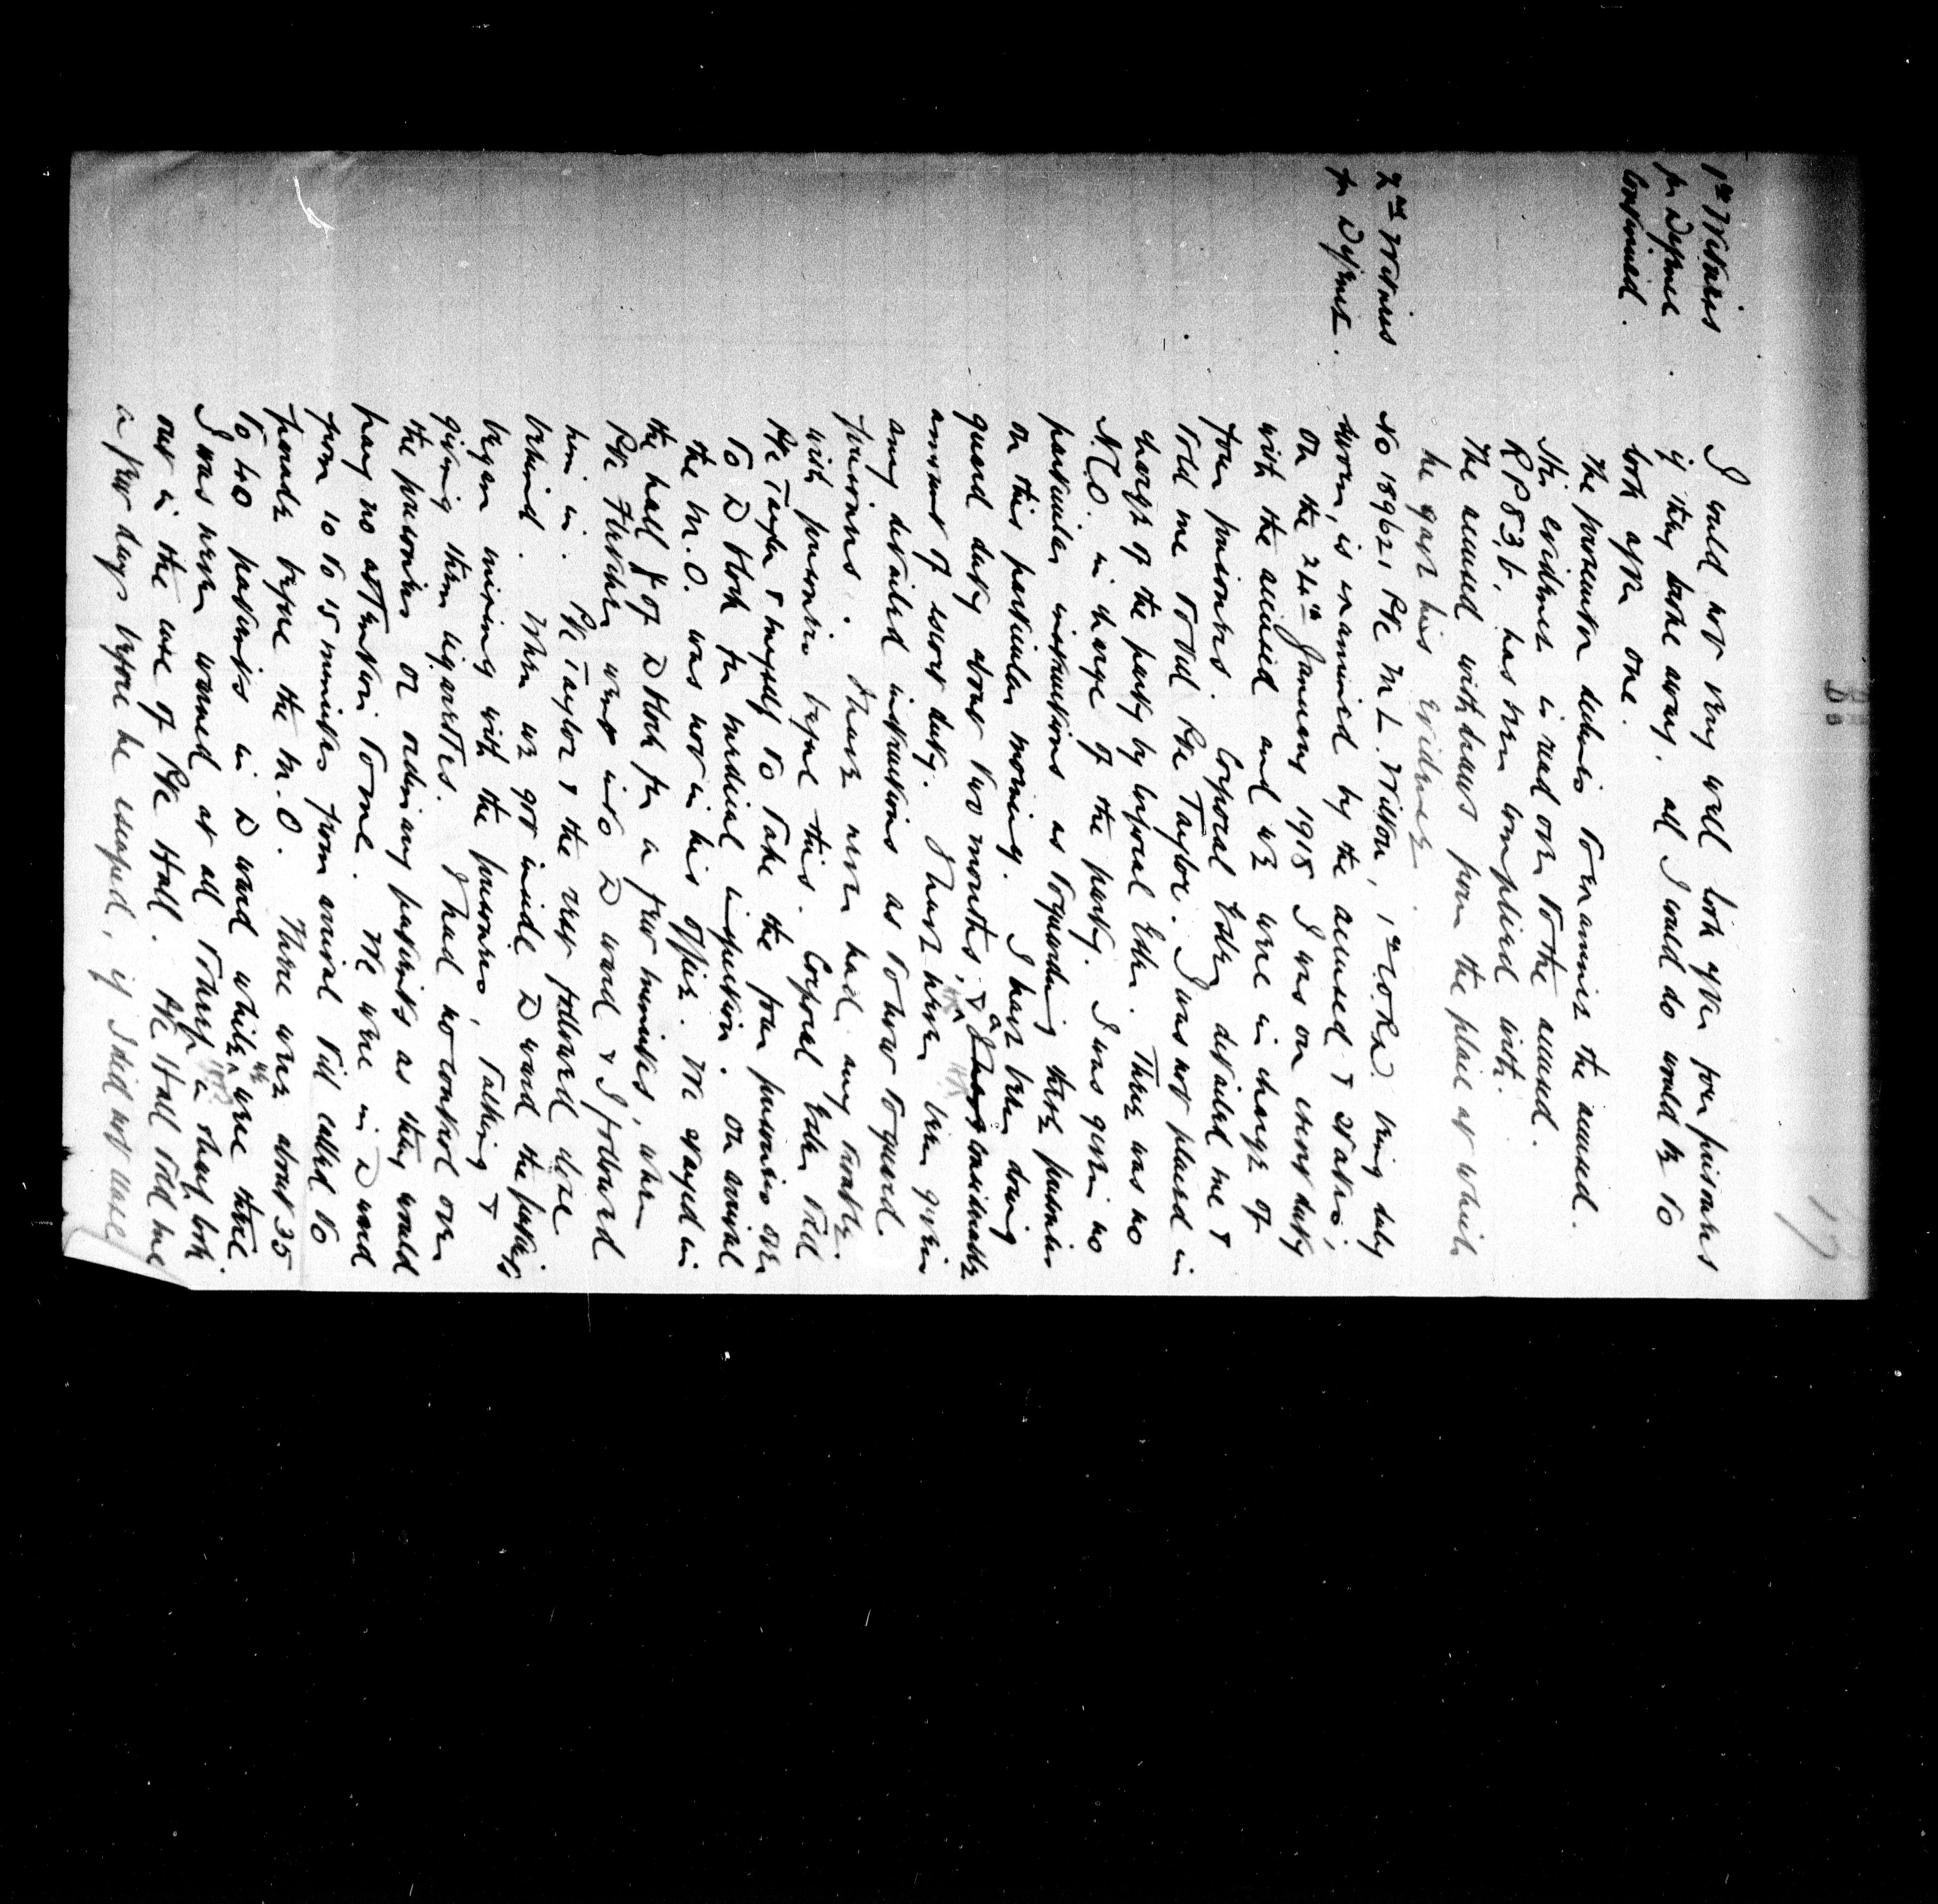 17
1st Witness
for Defence
Continued.
I could not very well look after four prisoners
if they broke away. all I could do would be to
look after one.
The prosecutor declines to examine the accused.
His evidence is read over to the accused.
R P 83, b, has been complied with.
The accused withdraws from the place at which
he gave his evidence.
2nd Witness
for Defence.
No 189621 Pte M L. Wilson, 1st C.O.R.D. being duly
sworn, is examined by the accused & states,
on the 24th January 1918 I was on escort duty
with the accused and we were in charge of
four prisoners. Corporal Edler detailed me &
told me to tell Pte Taylor. I was not placed in
charge of the party by Corporal Edler. There was no
N.C.O. in charge of the party. I was given no
particular instructions as to guarding these prisoners
on this particular morning. I have been doing
guard duty about two months, & a considerable
amount of escort duty. I have never been given
any detailed instructions as to how to guard
prisoners. I have never had any trouble
with prisoners before this. Corporal Edler told
Pte Taylor & myself to take the four prisoners over
to D Block for medical inspection. On arrival
the M.O. was not in his office. We stayed in
the hall of D Block for a few minutes, when
Pte Fletcher went into D ward & I followed
him in. Pte Taylor & the rest followed close
behind. When we got inside D ward the patients
began mixing with the prisoners, talking &
giving them cigarettes. I had no control over
the prisoners or ordinary patients as they would
pay no attention to me. We were in D ward
from 10 to 15 minutes from arrival till called to
parade before the M.O. There were about 35
to 40 patients in D ward while we were there.
I was never warned at all to keep a sharp look
out in the case of Pte Hall. Pte Hall told me
a few days before he escaped, if I did not use